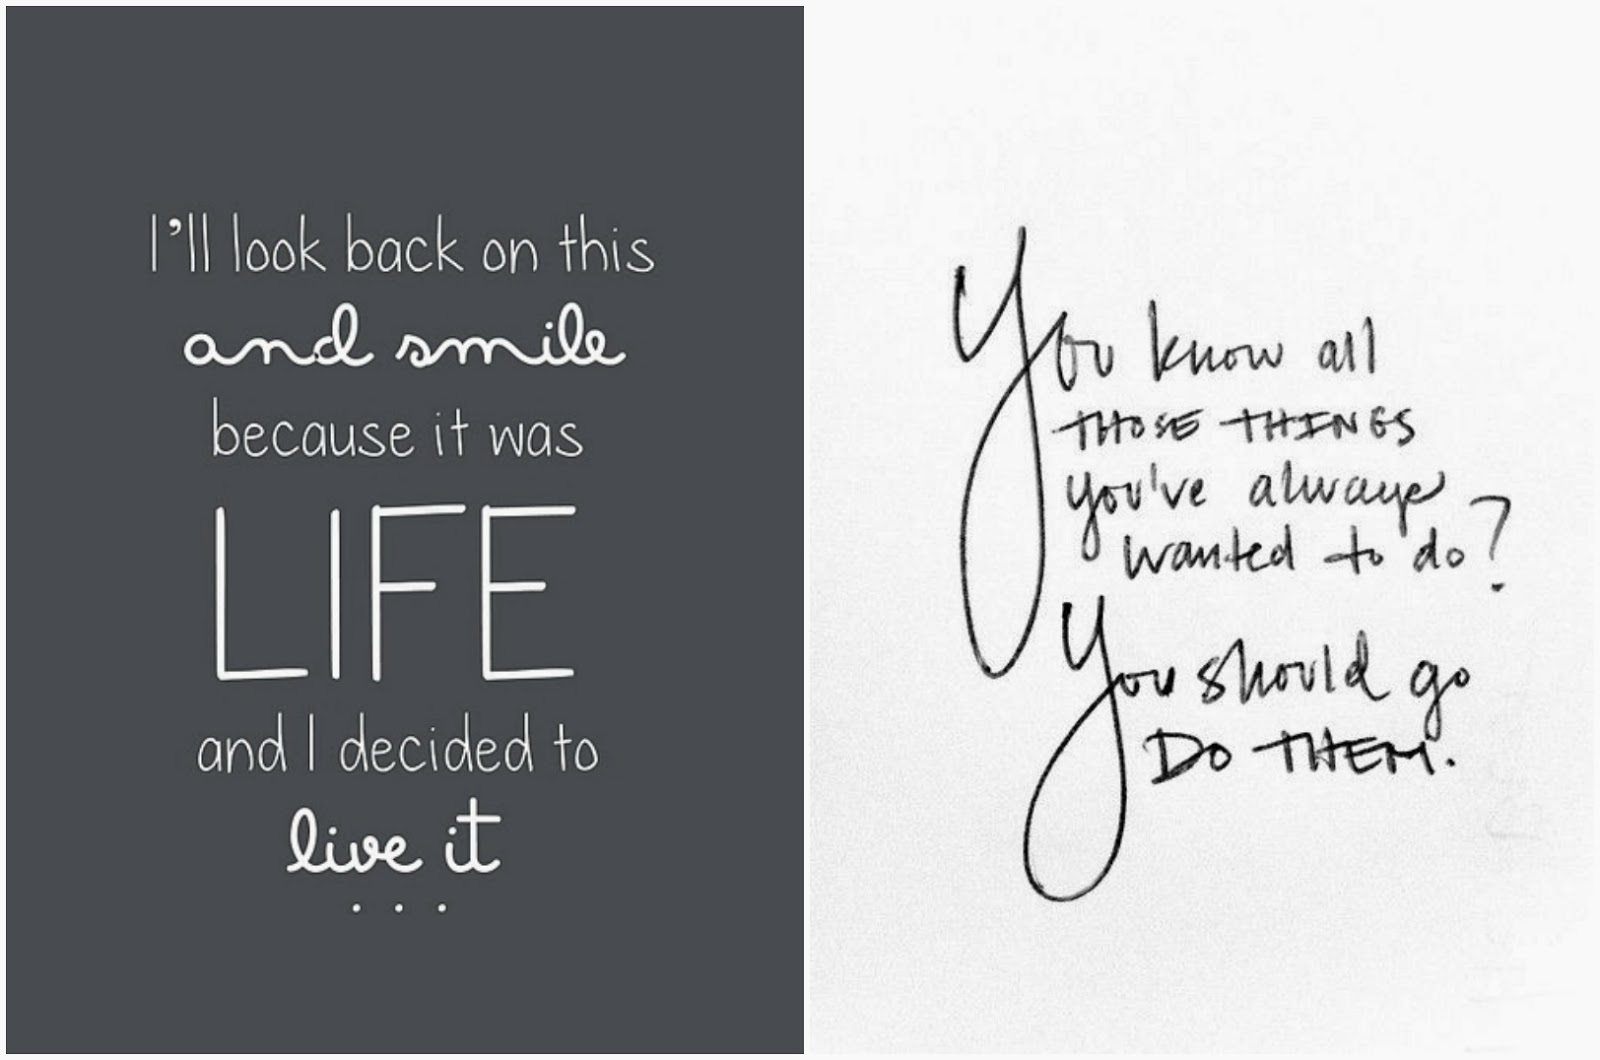 I'll look back on this
and smile
because it was
LIFE
and I decided to
live it
...
You know all
THOSE THINGS
you've always
wanted to do?
You should go
DO THEM.